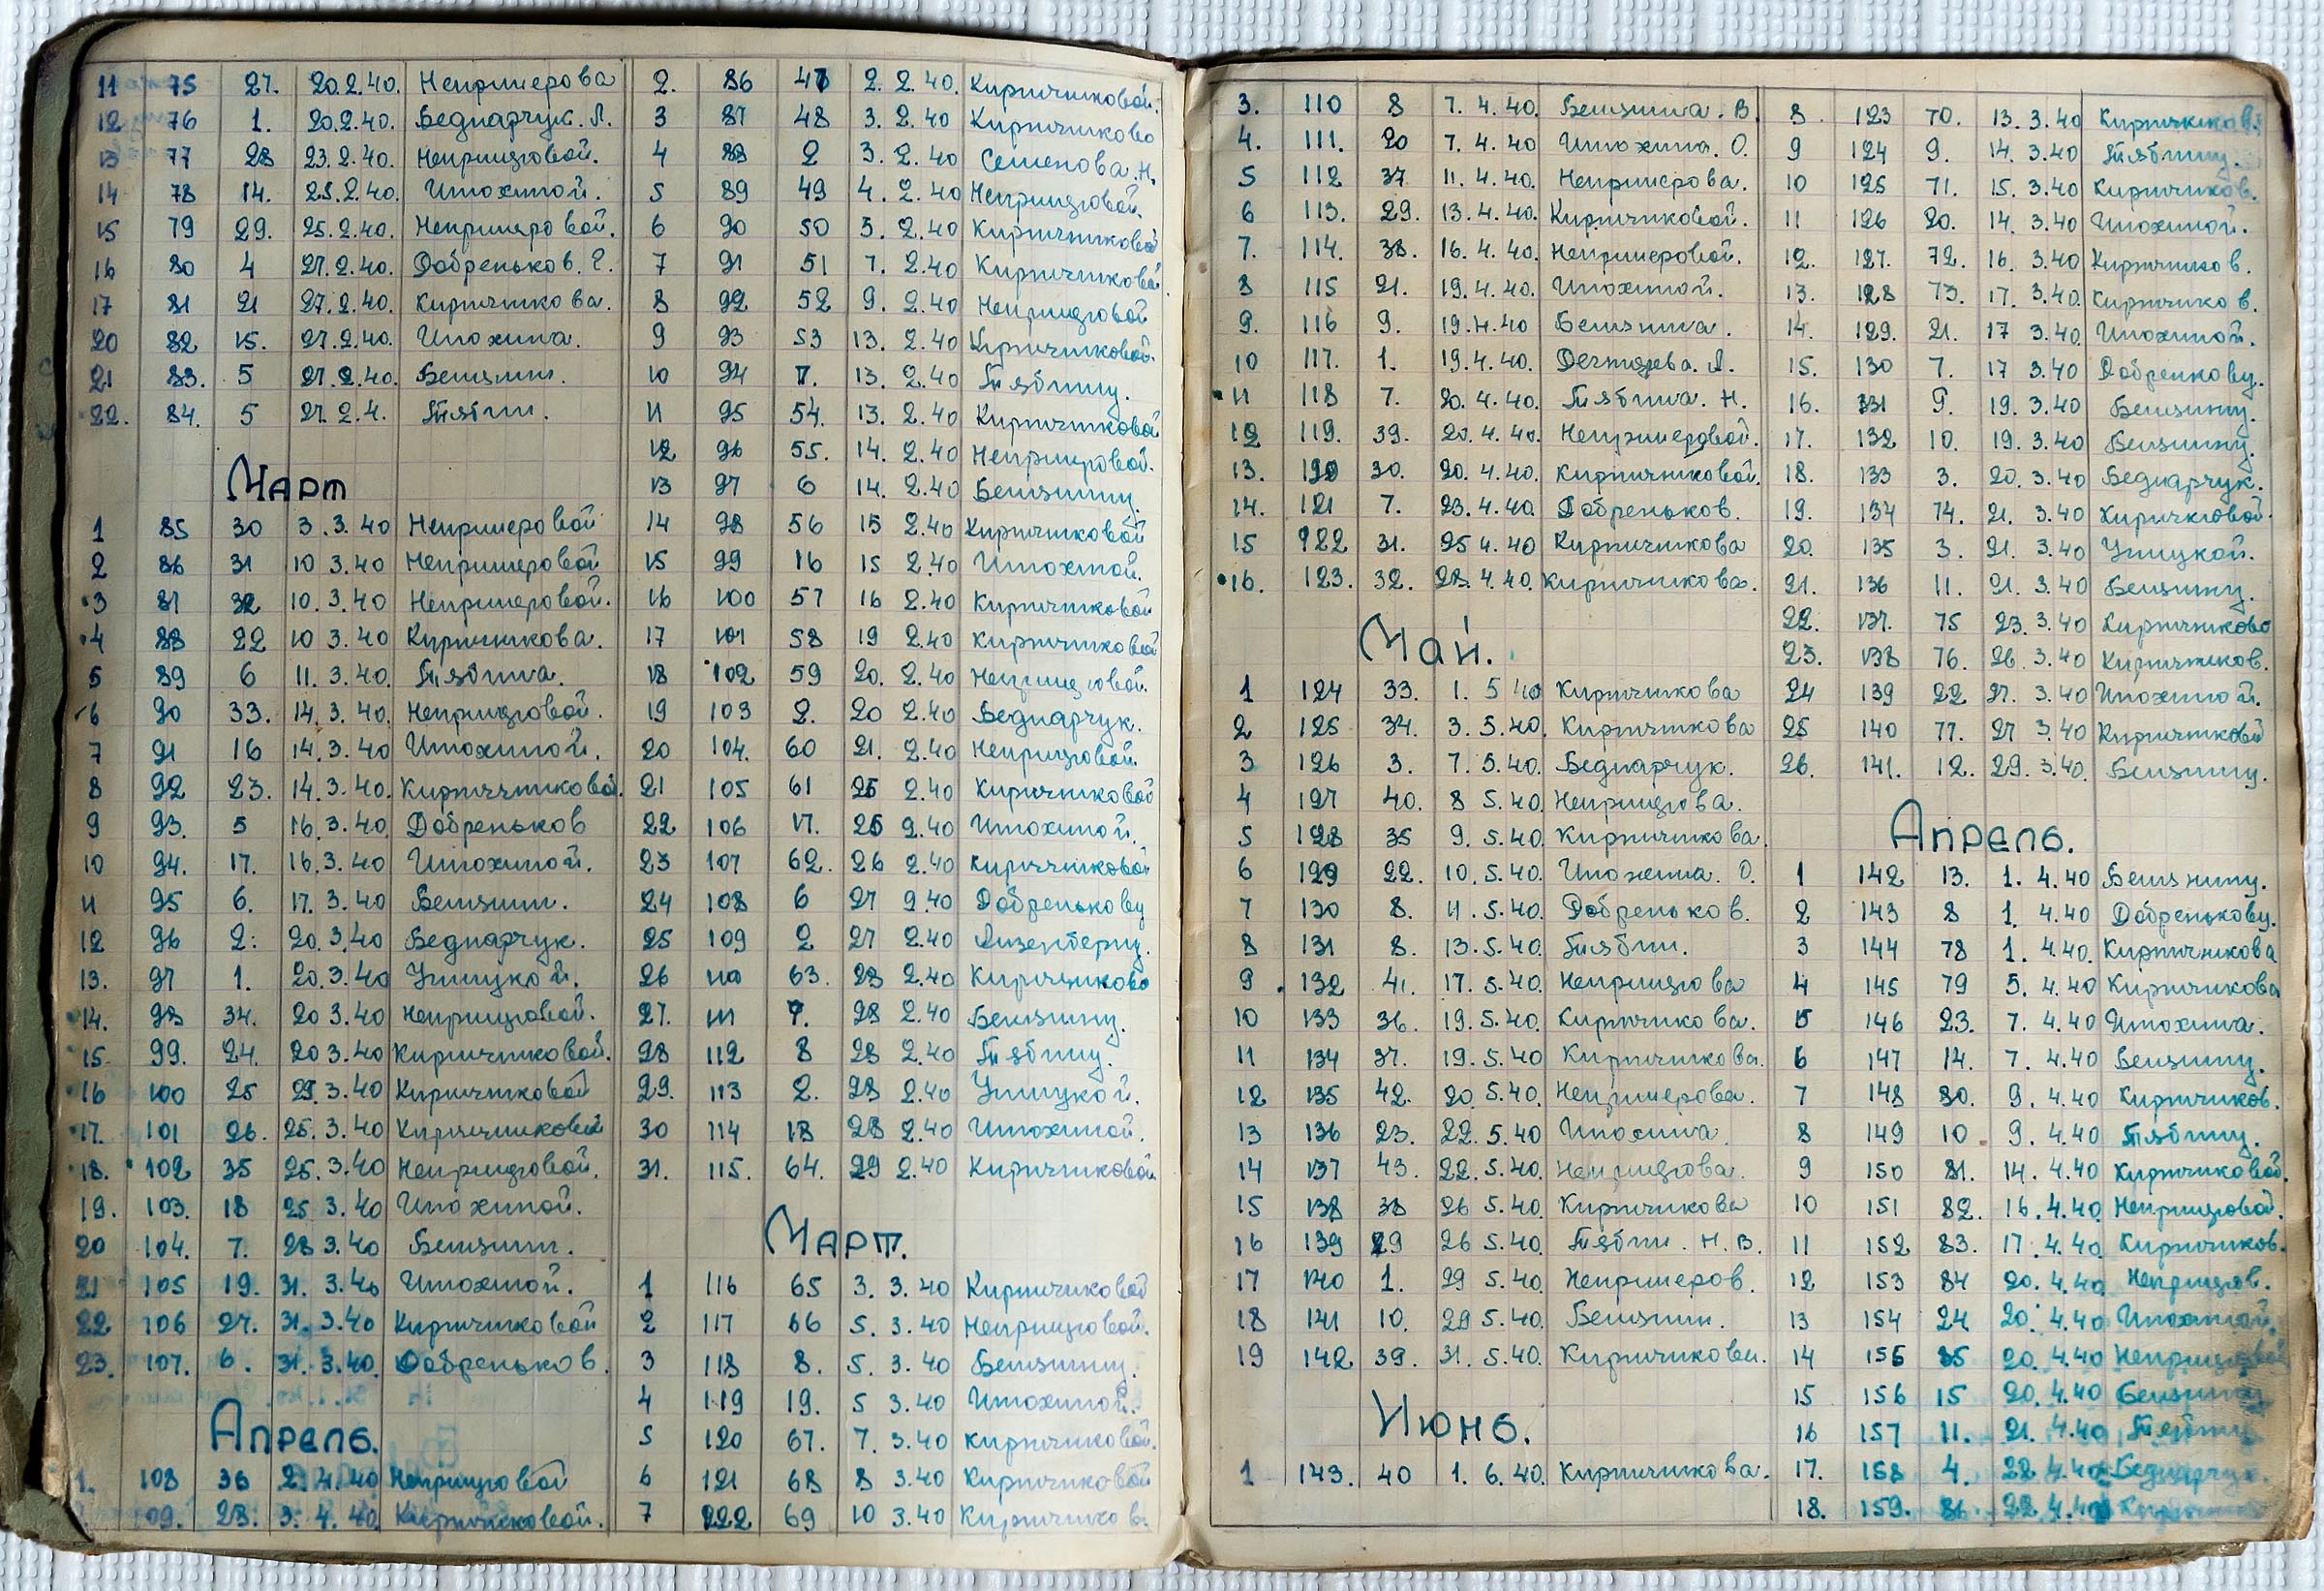 11 75 27. 20.2.40. Непримерова
12 76 1. 20.2.40. Беднарчук. Л.
13 77 28 23.2.40. Непримеровой.
14 78 14. 25.2.40. Итохиной.
15 79 29. 25.2.40. Непримеровой.
16 80 4 27.2.40. Добреньков. Г.
17 81 21 27.2.40. Кирпичникова.
20 82 15. 27.2.40. Итохина.
21 83. 5 27.2.40. Бензин.
22. 84. 5 27.2.4. Тяблин.
Март
1 85 30 3.3.40 Непримеровой
2 86 31 10 3.40 Непримеровой
3 87 32 10.3.40 Непримеровой.
4 88 22 10 3.40 Кирпичникова.
5 89 6 11.3.40. Тяблина.
6 90 33. 14.3.40. Непримеровой.
7 91 16 14.3.40 Итохиной.
8 92 23. 14.3.40. Кирпичниковой.
9 93. 5 16.3.40 Добреньков
10 94. 17. 16.3.40 Итохиной.
11 95 6. 17.3.40 Бензин.
12 96 2. 20.3.40 Беднарчук.
13. 97 1. 20.3.40 Улицкой.
14. 98 34. 20 3.40 Непримеровой.
15. 99. 24. 20 3.40 Кирпичниковой.
16 100 25 23.3.40 Кирпичниковой
17. 101 26. 25.3.40 Кирпичниковой
18. 102 35 25.3.40 Непримеровой.
19. 103. 18 25 3.40 Итохиной.
20 104. 7. 28 3.40 Бензин.
21 105 19. 31. 3.40 Итохиной.
22 106 27. 31. 3.40 Кирпичниковой
23. 107. 6. 31. 3.40. Добреньков.
Апрель.
1. 108 36 2.4.40 Непримеровой
109. 28. 3. 4. 40. Кирпичниковой.
2. 86 47 2. 2.40. Кирпичниковой.
3 87 48 3. 2.40 Кирпичниково
4 88 2 3. 2.40 Семенова.Н.
5 89 49 4. 2.40 Непримеровой.
6 90 50 5. 2.40 Кирпичниковой
7 91 51 7. 2.40 Кирпичниковой.
8 92 52 9. 2.40 Непримеровой
9 93 53 13. 2.40 Кирпичниковой.
10 94 7. 13. 2.40 Тяблину.
11 95 54. 13. 2.40 Кирпичниковой
12 96 55. 14. 2.40 Непримеровой.
13 97 6 14. 2.40 Бензину.
14 98 56 15 2.40 Кирпичниковой
15 99 16 15 2.40 Итохиной.
16 100 57 16 2.40 Кирпичниковой
17 101 58 19 2.40 Кирпичниковой
18 102 59 20. 2.40 Непримеровой.
19 103 2. 20 2.40 Беднарчук.
20 104. 60 21. 2.40 Непримеровой
21 105 61 25 2.40 Кирпичниковой
22 106 17. 25 2.40 Итохиной.
23 107 62. 26 2.40 Кирпичниковой
24 108 6 27 2.40 Добренькову
25 109 2 27 2.40 Айзенбергу.
26 110 63. 28 2.40 Кирпичниково
27. 111 7. 28 2.40 Бензину.
28 112 8 28 2.40 Тяблину.
29. 113 2. 28 2.40 Улицкой.
30 114 18 28 2.40 Итохиной.
31. 115. 64. 29 2.40 Кирпичниковой
Март.
1 116 65 3. 3.40 Кирпичниковой
2 117 66 5. 3.40 Непримеровой.
3 118 8. 5. 3.40 Бензину.
4 119 19. 5 3.40 Итохиной.
5 120 67. 7. 3.40 Кирпичниковой.
6 121 68 8 3.40 Кирпичниковой
7 222 69 10 3.40 Кирпичников.
3. 110 8 7. 4.40. Бензина. В.
4. 111. 20 7. 4.40 Итохина. О.
5 112 37 11. 4.40. Непримерова.
6 113. 29. 13.4.40. Кирпичниковой.
7. 114. 38. 16. 4.40. Непримеровой.
8 115 21. 19.4.40. Итохиной.
9. 116 9. 19.4.40 Бензина.
10 117. 1. 19.4.40.
11 118 7. 20.4.40. Тяблина. Н.
12 119. 39. 20.4.40. Непримеровой.
13. 120 30. 20.4.40. Кирпичниковой.
14. 121 7. 23.4.40. Добреньков.
15 922 31. 25 4.40 Кирпичникова
16. 123. 32. 28. 4.40. Кирпичникова.
Май.
1 124 33. 1. 5 40 Кирпичникова
2 125 34. 3. 5.40. Кирпичникова
3 126 3. 7. 5.40. Беднарчук.
4 127 40. 8 5.40. Непримерова.
5 128 35 9. 5.40. Кирпичникова.
6 129 22. 10. 5.40. Итохина. О.
7 130 8. 11. 5.40. Добреньков.
8 131 8. 13.5.40. Тяблин.
9 132 41. 17. 5.40. Непримерова
10 133 36. 19.5.40. Кирпичникова.
11 134 37. 19.5.40 Кирпичникова.
12 135 42. 20 5.40. Непримерова.
13 136 23. 22. 5.40 Итохина.
14 137 43. 22. 5.40. Непримерова.
15 138 38 26 5.40. Кирпичникова
16 139 29 26 5.40. Тяблин. Н.В.
17 140 1. 29 5.40. Непримеров.
18 141 10. 29 5.40. Бензин.
19 142 39. 31. 5.40. Кирпичниковой.
Июнь.
1 143. 40 1. 6.40. Кирпичникова.
8. 123 70. 13. 3.40 Кирпичников.
9 124 9. 14. 3.40 Тяблину.
10 125 71. 15. 3.40 Кирпичников.
11 126 20. 14. 3.40 Итохиной.
12. 127. 72. 16. 3.40 Кирпичников.
13. 128 73. 17. 3.40. Кирпичников.
14. 129. 21. 17 3.40. Итохиной.
15. 130 7. 17 3.40. Добренкову.
16. 331 9. 19. 3.40 Бензину.
17. 132 10. 19. 3.40 Бензину.
18. 133 3. 20. 3.40 Беднарчук.
19. 134 74. 21. 3.40 Кирпичниковой.
20. 135 3. 21. 3.40 Улицкой.
21. 136 11. 21. 3.40 Бензину.
22. 137. 75 23. 3.40 Кирпичниково
23. 138 76. 26. 3.40 Кирпичников.
24 139 22 27. 3.40 Итохиной.
25 140 77. 27 3.40 Кирпичниковой
26. 141. 12. 29. 3.40. Бензину.
Апрель.
1 142 13. 1. 4.40 Бензину.
2 143 8 1. 4.40 Добренькову.
3 144 78 1. 4.40. Кирпичникова
4 145 79 5. 4.40 Кирпичникова
5 146 23. 7. 4.40 Итохина.
6 147 14. 7. 4.40 Бензину.
7 148 80. 9. 4.40 Кирпичников.
8 149 10. 9. 4.40 Тяблину.
9 150 81. 14. 4.40 Кирпичниковой.
10 151 82. 16. 4.40. Непримеровой.
11 152 83. 17. 4.40. Кирпичников.
12 153 84 20. 4.40. Непримеров.
13 154 24 20. 4.40 Итохиной.
14 155 85 20. 4.40
15 156 15 20. 4.40 Бензину
16 157 11. 21. 4.40
17. 158 4. 22 4.40 Беднарчук.
18. 159. 86. 22.4.40